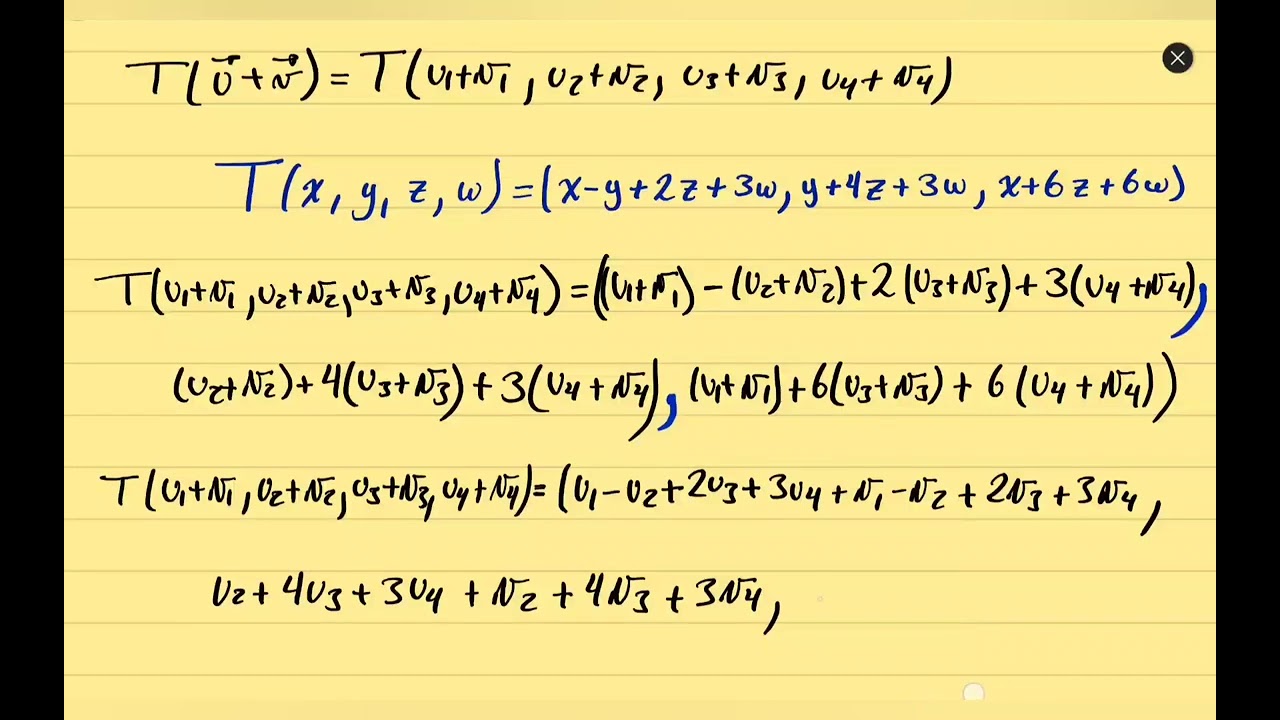 T(u⃗+v⃗) = T(u1+v1, u2+v2, u3+v3, u4+v4)
T(x, y, z, w) = (x-y+2z+3w, y+4z+3w, x+6z+6w)
T(u1+v1, u2+v2, u3+v3, u4+v4) = ((u1+v1) - (u2+v2) + 2(u3+v3) + 3(u4+v4),
(u2+v2) + 4(u3+v3) + 3(u4+v4), (u1+v1) + 6(u3+v3) + 6(u4+v4))
T(u1+v1, u2+v2, u3+v3, u4+v4) = (u1-u2+2u3+3u4+v1-v2+2v3+3v4,
u2+4u3+3u4+v2+4v3+3v4,